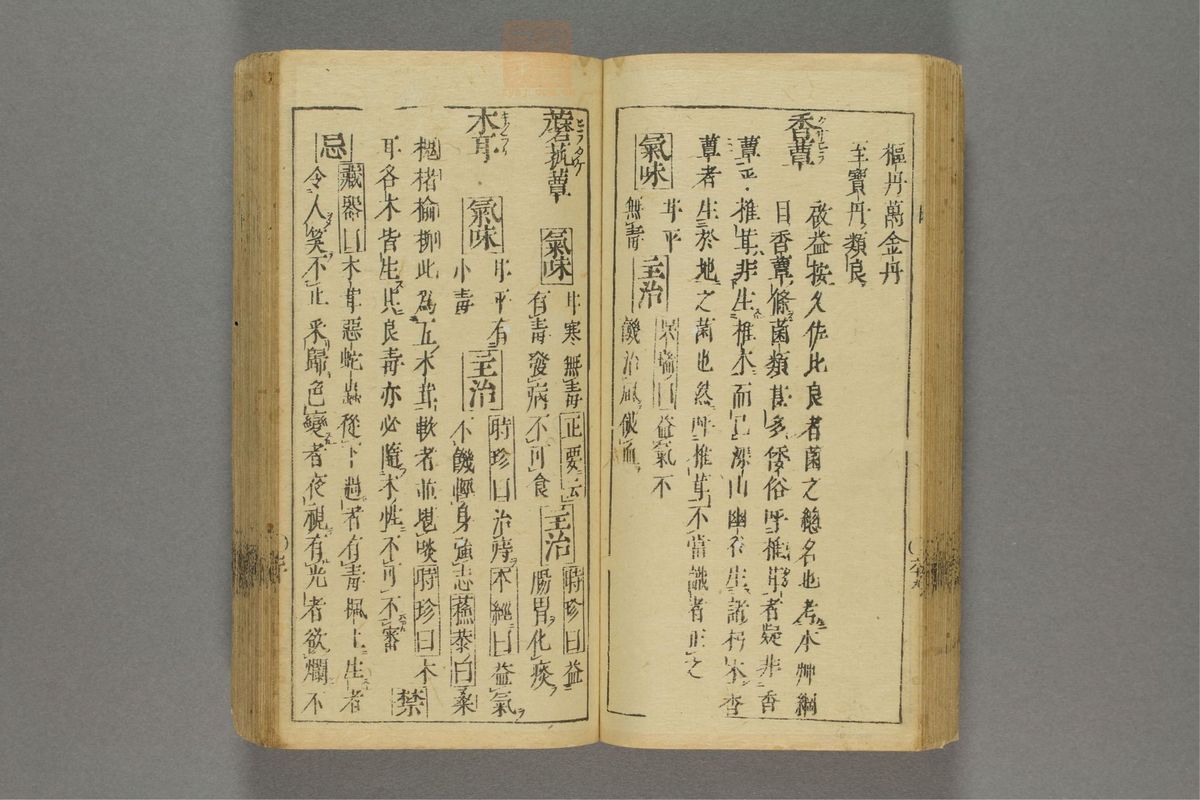 樞丹萬金丹
至寶丹類良
香蕈
啟益按久佐比良者菌之總名也考本艸綱
目香蕈條菌類甚多倭俗呼椎茸者疑非香
蕈乎椎茸非生椎木而已深山幽谷生諸朽木香
蕈者生於地之菌也然呼椎茸不當識者正之
氣味 甘平
無毒 主治 吳瑞曰益氣不
饑治風破血
蘑菰蕈 氣味 甘寒無毒正要云
有毒發病不可食 主治 時珍曰益
腸胃化痰
木耳 氣味 甘平有
小毒 主治 時珍曰治痔本經曰益氣
不饑輕身強志蘇恭曰桑
槐楮榆柳此為五木茸軟者並堪啖時珍曰木
耳各木皆生其良毒亦必隨木性不可不審 禁
忌 藏器曰木茸惡蛇蟲從下過者有毒楓上生者
令人笑不止采歸色變者夜視有光者欲爛不